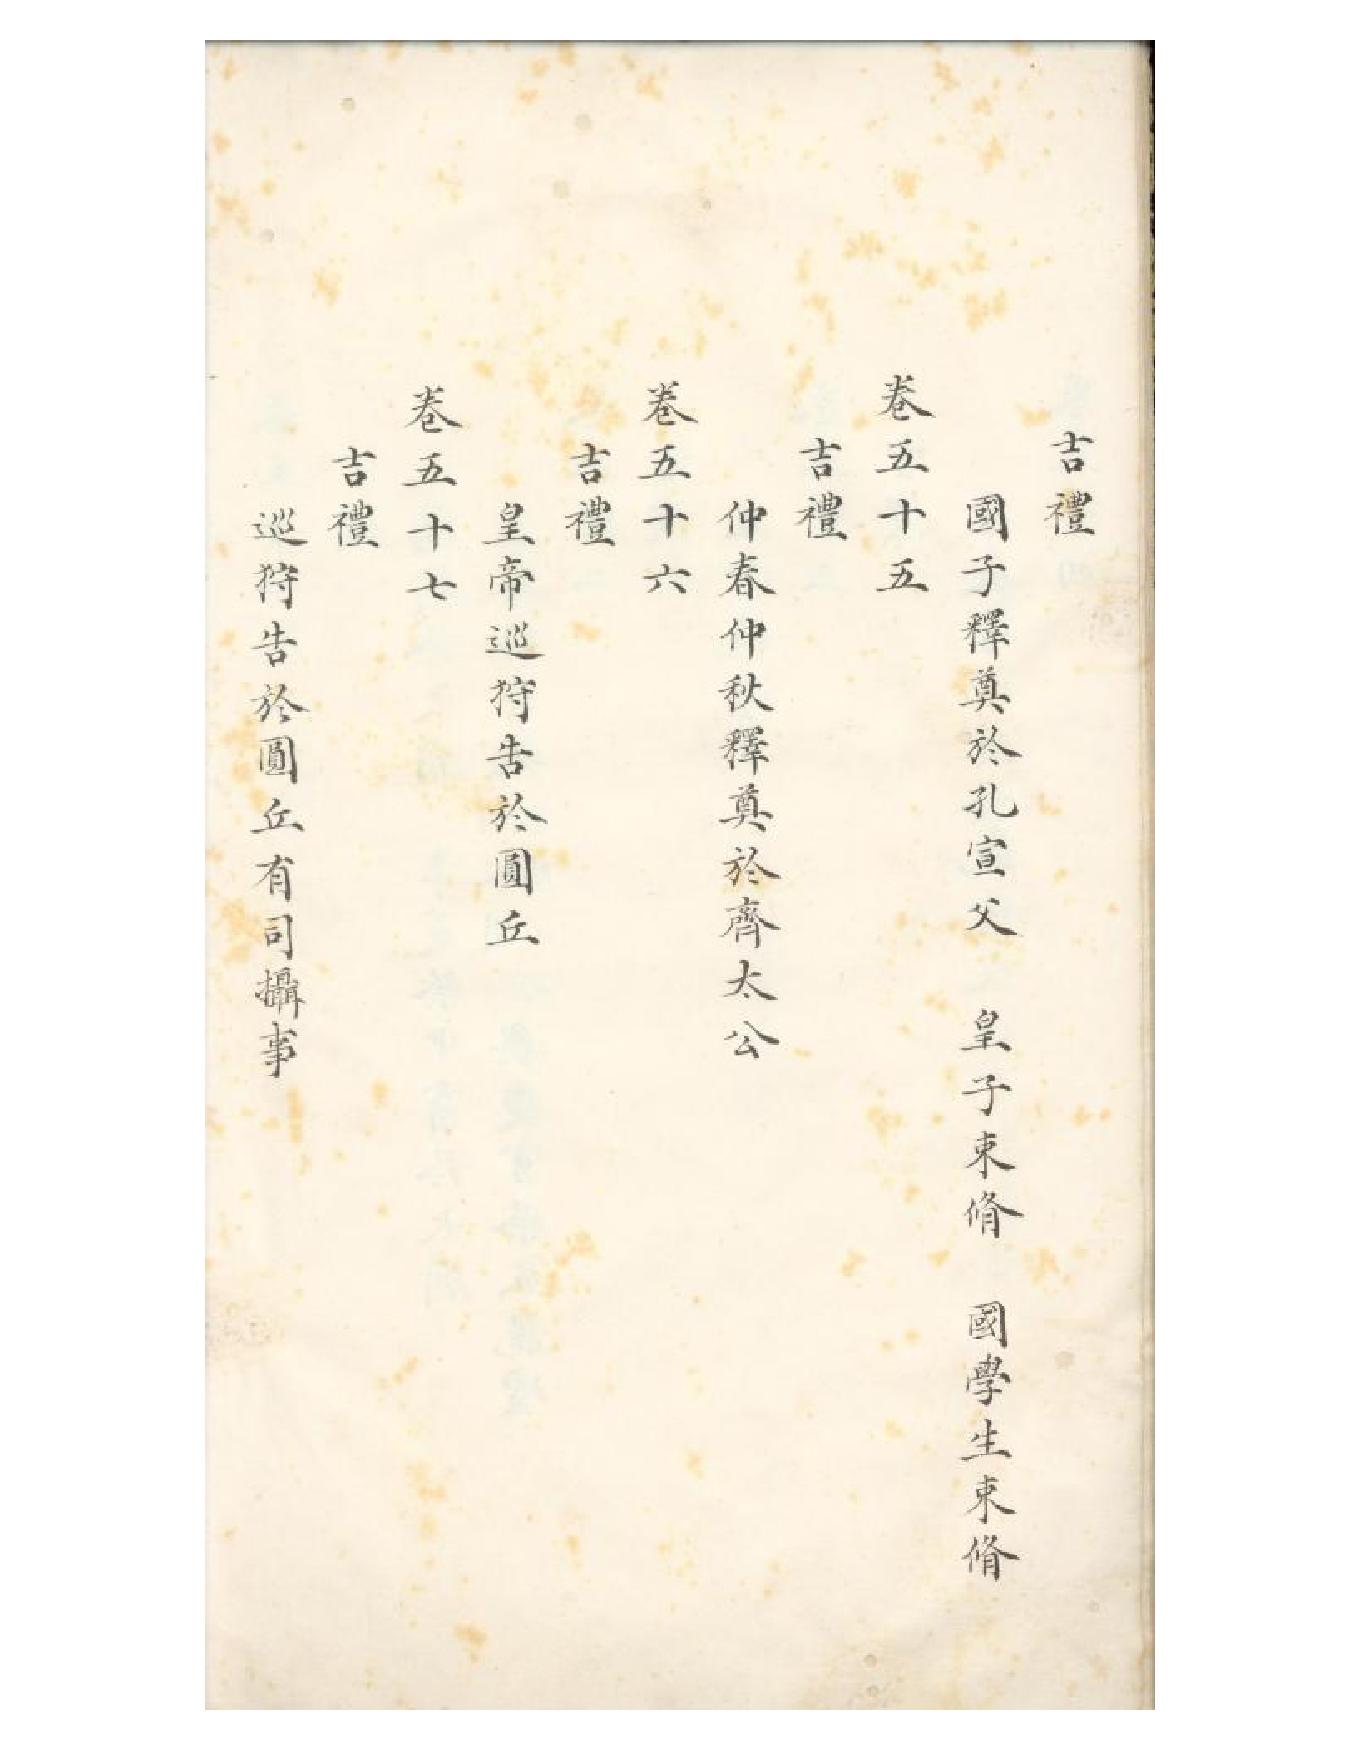 吉禮
國子釋奠於孔宣父　皇子束脩　國學生束脩
卷五十五
吉禮
仲春仲秋釋奠於齊太公
卷五十六
吉禮
皇帝巡狩告於圓丘
卷五十七
吉禮
巡狩告於圓丘有司攝事